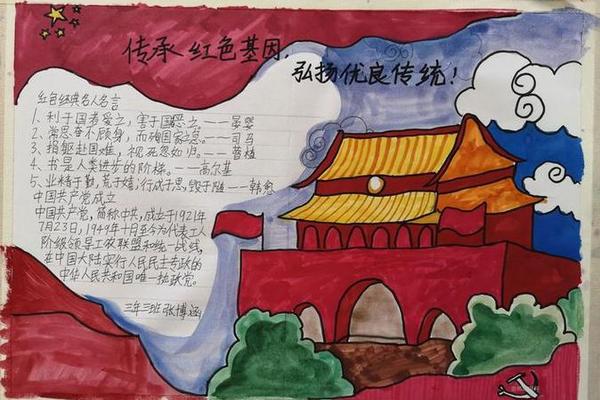 传承红色基因,
弘扬优良传统!
红色经典名人名言
1、利于国者爱之,害于国恶之。——晏婴
2、常思奋不顾身,而殉国家之急。——司马
3、捐躯赴国难,视死忽如归。——曹植
4、书是人类进步的阶梯。——高尔基
5、业精于勤,荒于嬉,行成于思,毁于随——韩愈
中国共产党成立
中国共产党,简称中共,成立于1921年
7月23日,1949年10月至今为代表工人
阶级领导工农联盟和统一战线,
在中国大陆实行人民民主专政的
中华人民共和国唯一执政党。
三年三班张博涵